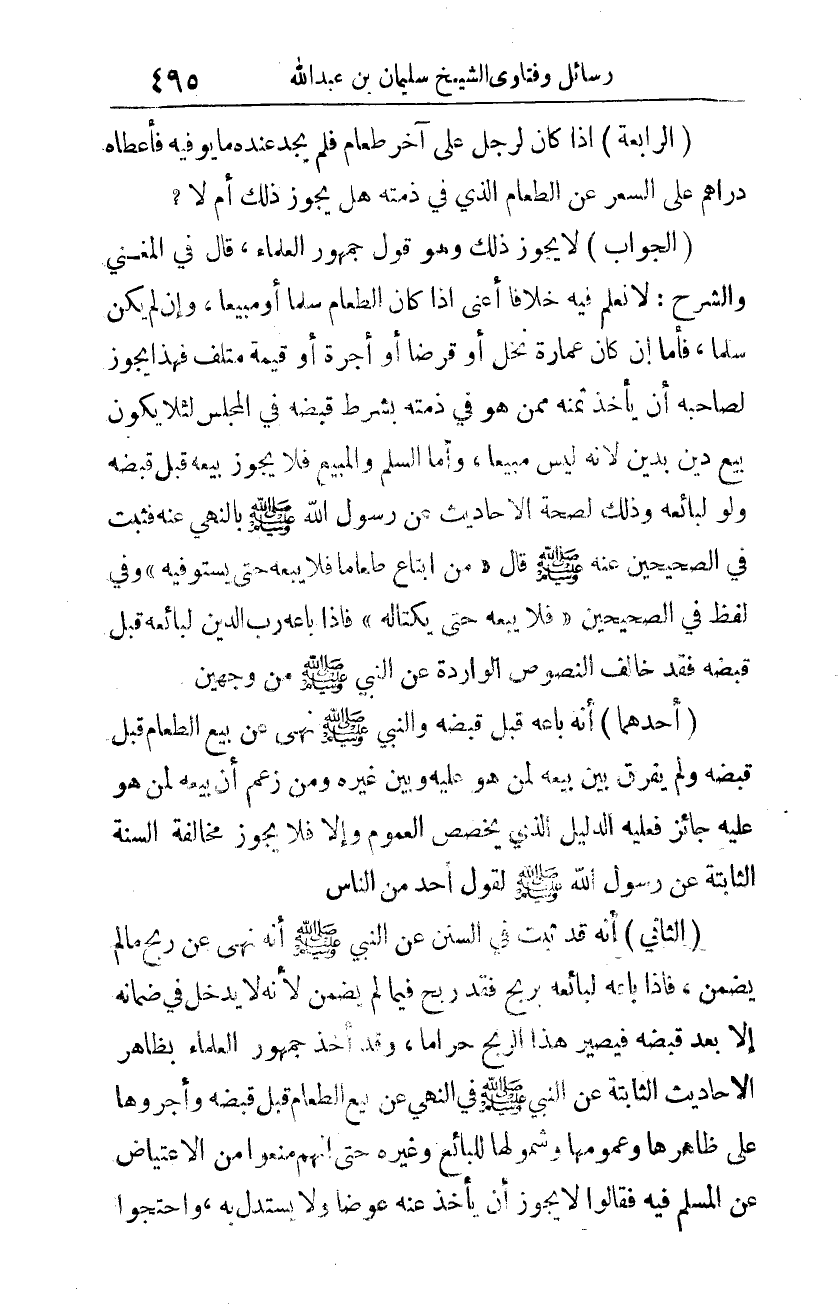 رسائل وفتاوى الشيخ سليمان بن عبدالله ٤٩٥
( الرابعة ) اذا كان لرجل على آخر طعام فلم يجد عنده مايوفيه فأعطاه
دراهم على السعر عن الطعام الذي في ذمته هل يجوز ذلك أم لا ؟
( الجواب ) لايجوز ذلك وهو قول جمهور العلماء ، قال في المغـني
والشرح : لانعلم فيه خلافا أعنى اذا كان الطعام سلما أومبيعا ، وإن لم يكن
سلما ، فأما إن كان عمارة نخل أو قرضا أو أجرة أو قيمة متلف فهذا يجوز
لصاحبه أن يأخذ ثمنه ممن هو في ذمته بشرط قبضه في المجلس لئلا يكون
بيع دين بدين لانه ليس مبيعا ، وأما السلم والمبيع فلا يجوز بيعه قبل قبضه
ولو لبائعه وذلك لصحة الاحاديث عن رسول الله ﷺ بالنهي عنه فثبت
في الصحيحين عنه ﷺ قال « من ابتاع طعاما فلا يبعه حتى يستوفيه » وفي
لفظ في الصحيحين « فلا يبعه حتى يكتاله » فاذا باعه رب الدين لبائعه قبل
قبضه فقد خالف النصوص الواردة عن النبي ﷺ من وجهين
( أحدهما ) أنه باعه قبل قبضه والنبي ﷺ نهى عن بيع الطعام قبل
قبضه ولم يفرق بين بيعه لمن هو عليه وبين غيره ومن زعم أن بيعه لمن هو
عليه جائز فعليه الدليل الذي يخصص العموم وإلا فلا يجوز مخالفة السنة
الثابتة عن رسول الله ﷺ لقول أحد من الناس
( الثاني ) أنه قد ثبت في السنن عن النبي ﷺ أنه نهى عن ربح مالم
يضمن ، فاذا باعه لبائعه بربح فقد ربح فيما لم يضمن لأنه لا يدخل في ضمانه
إلا بعد قبضه فيصير هذا الربح حراما ، وقد أخذ جمهور العلماء بظاهر
الاحاديث الثابتة عن النبي ﷺ في النهي عن بيع الطعام قبل قبضه وأجروها
على ظاهرها وعمومها وشمولها للبائع وغيره حتى انهم منعوا من الاعتياض
عن المسلم فيه فقالوا لا يجوز أن يأخذ عنه عوضا ولا يستدل به ، واحتجوا